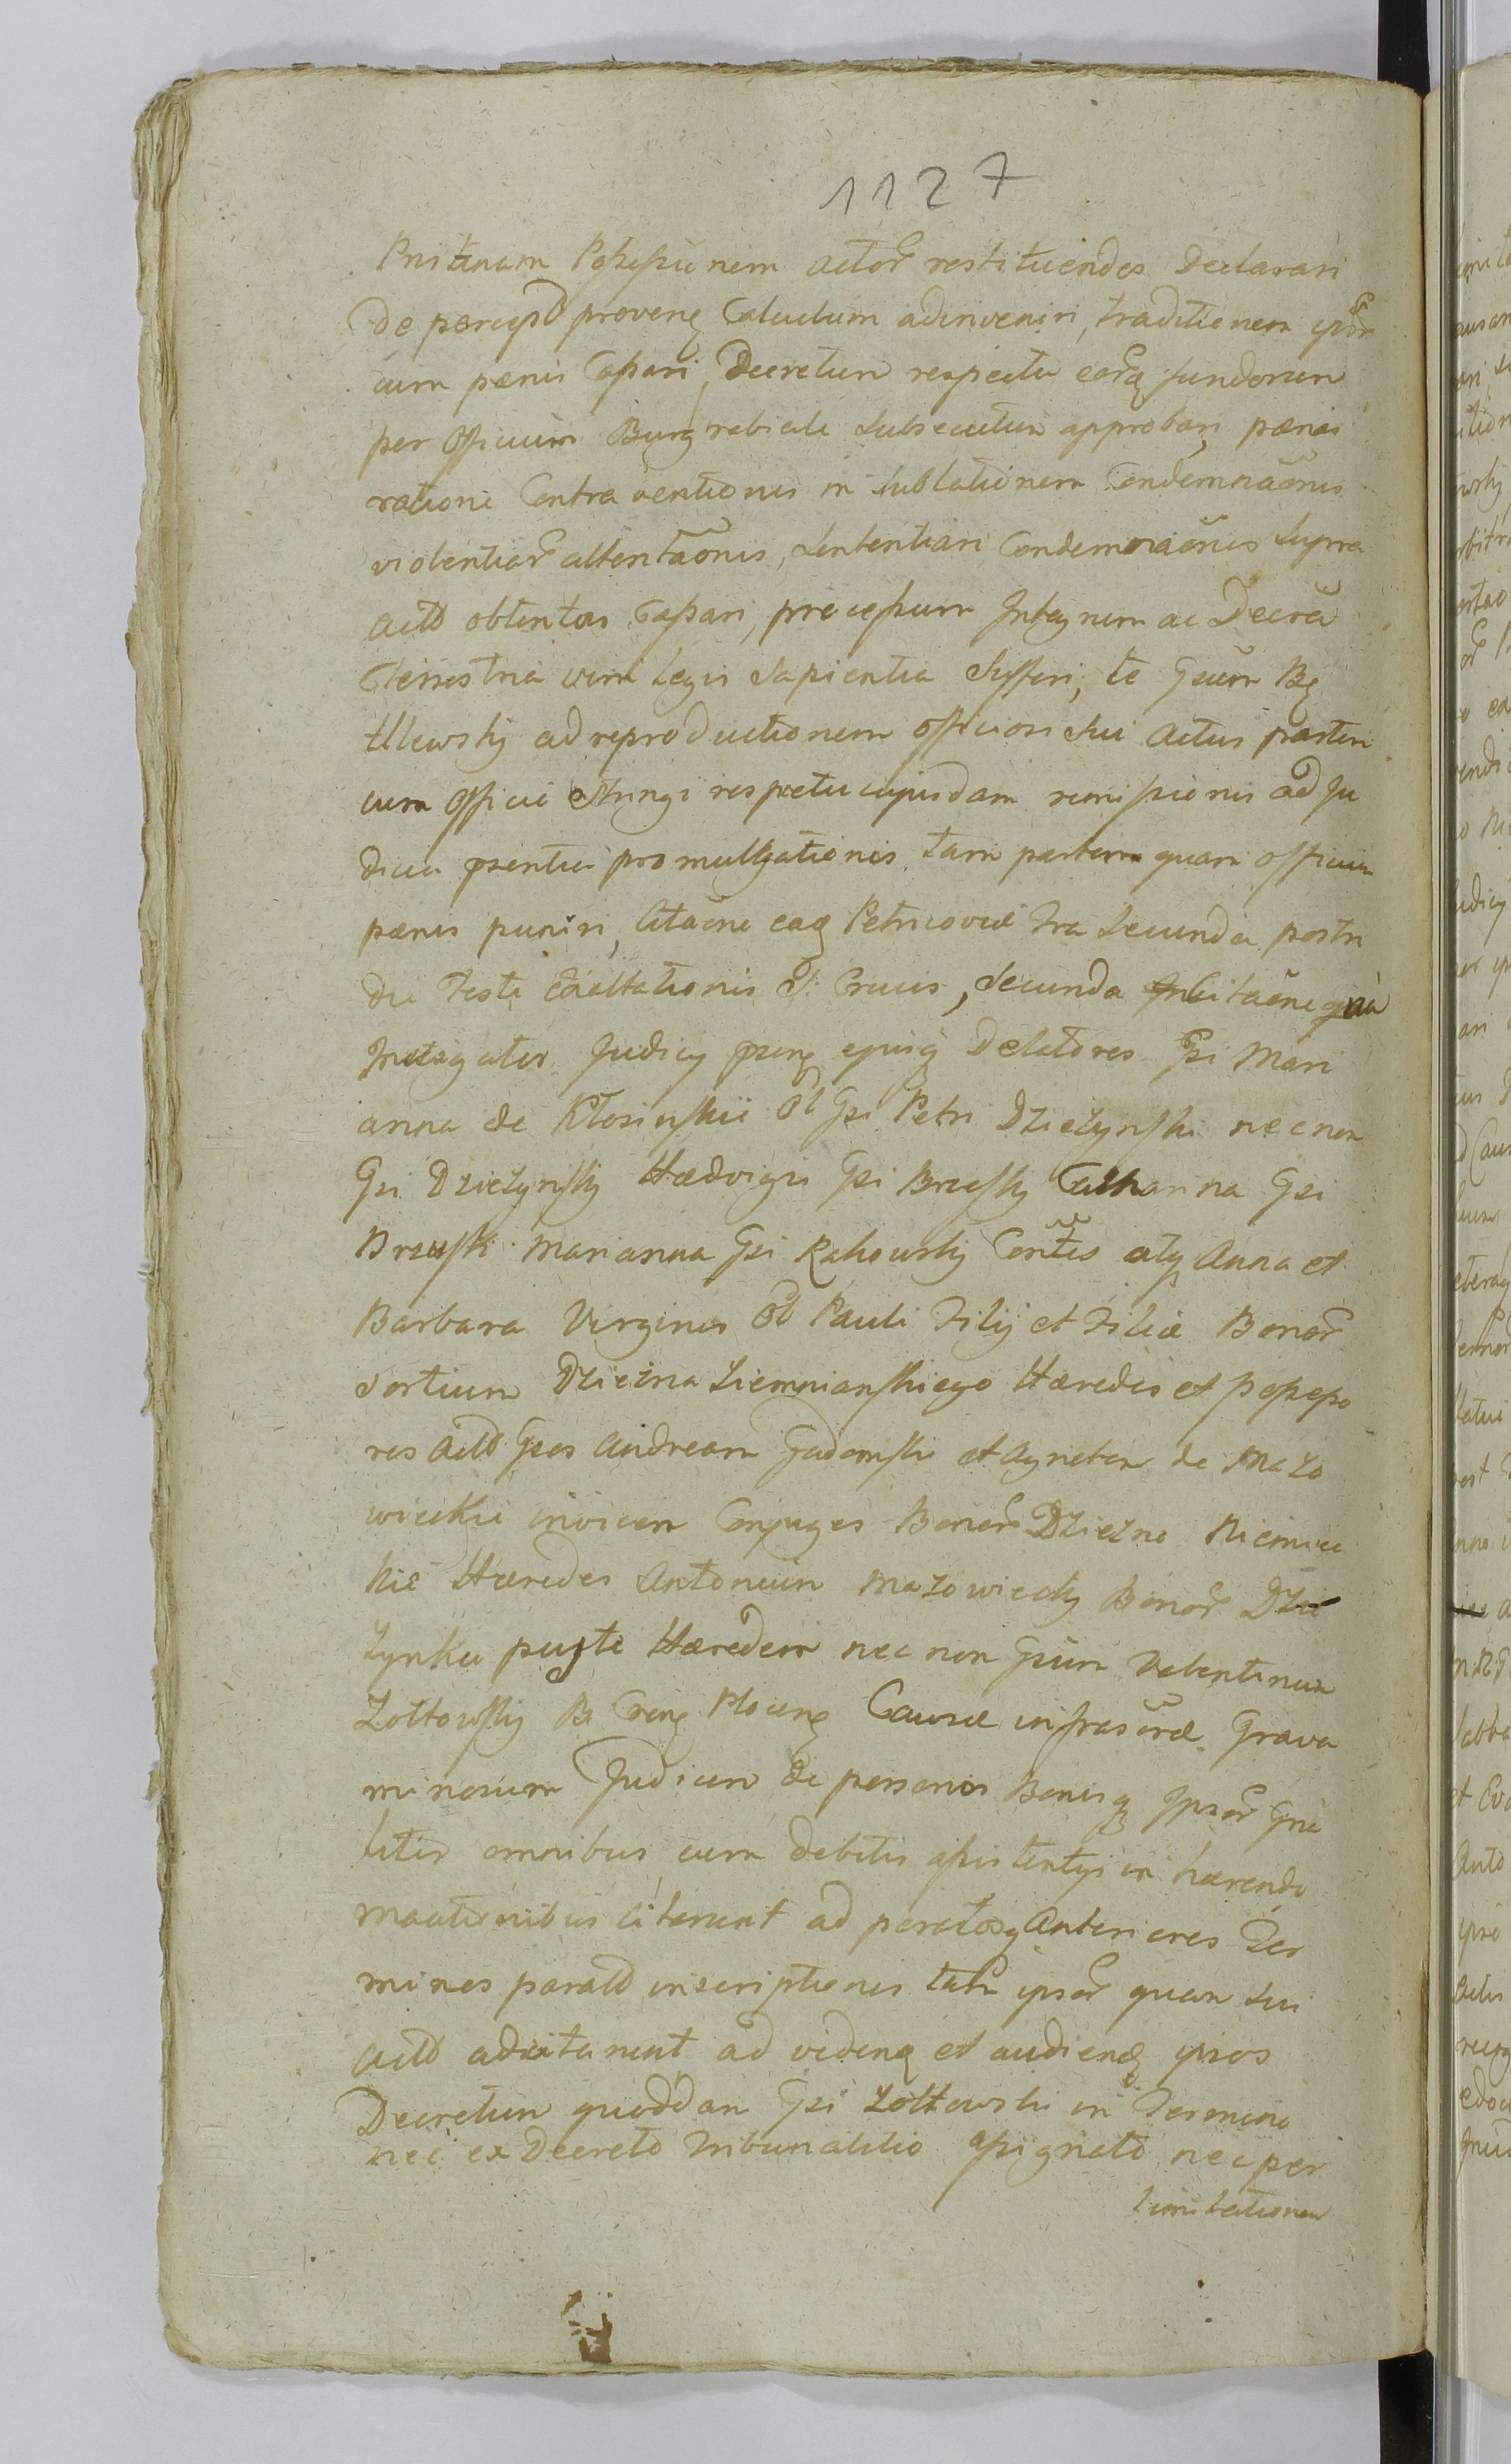 1127
Pristinam Possessionem actor restituendos Declarari
De percept provene Calculum adinveniri, traditionem ipsor
cum pænis Cassari, Decretum respectu eorq fundorum
per Officium Burgrabiale subsecutum approbari, pænas
ratione Contraventionis in sublationem Condemnaõnis
violentiar attentaõnis, sententiari Condemnaõnes supra
actt obtentas Cassari, processum Integrum ac Decre
Terrestria vim legis sapientia sufferi, te Gsum
Ulewsky ad reproductionem officiosi sui actus partem
cum Officio stringi respectu cujusdam remissionis ad Ju
dicia psentia promulgationis tam partem quam officium
pænis puniri, Citaõne eaq Petricoviæ fra secunda postri
die Festi Exaltationis S: Crucis, secunda Citaõne qua
Instigator Judicy psens ejusq Delatores Gsi Mari
anna de Kłosinskie Ol Gsi Petri Dzieżynski nec non
Gsi Dzieżynsky Hædvigis Gsi Brzesky Catharina Gsi
Brzeski Marianna Gsi Rakowsky Contes atq Anna et
Barbara Virgines Ol Pauli Filij et Filiæ Bonor
sortium Dziezna Ziemnianskiego Hæredes et possesso
res actt Gsos Andream Gadomski et Agnetem de Mazo
wieckie invicem Conjuges Bonor Dziezno Niemiec
kie Hæredes Antonium Mazowiecky Bonor Dzie
zynku puste Hæredem nec non Gsum Valentinum
Zołtowsky B Cren Plocens Causæ infrascræ Grava
minosum Judicem de personis Bonisq Ipsor Gna
liter omnibus cum debitis assistentys in hærendo
maationibus citarunt ad paratosq Anteriores Ter
minos paratt inscriptiones tam ipsor quam sui
actt adcitarunt ad videnq et audienq ipsos
Decretum quoddam Gsi Zołtowski in Termino
nec ex Decreto Tribunalitio assignato nec per
limitationem